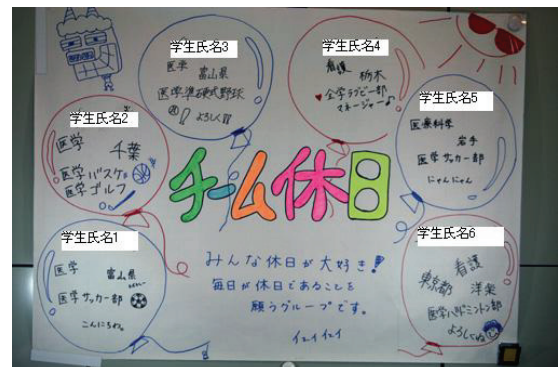 学生氏名3
医学
富山県
医学準硬式野球
よろしく!!
学生氏名4
看護
栃木
全学ラグビー部
マネージャー
学生氏名2
医学
千葉
医学バスケ
医学ゴルフ
学生氏名5
医療科学
岩手
医学サッカー部
にゃんにゃん
チーム休日
学生氏名1
医学
富山県
医学サッカー部
こんにちわ。
みんな休日が大好き!
毎日が休日であることを
願うグループです。
イェイ イェイ
学生氏名6
看護
東京都
洋楽
医学バドミントン部
よろしくね